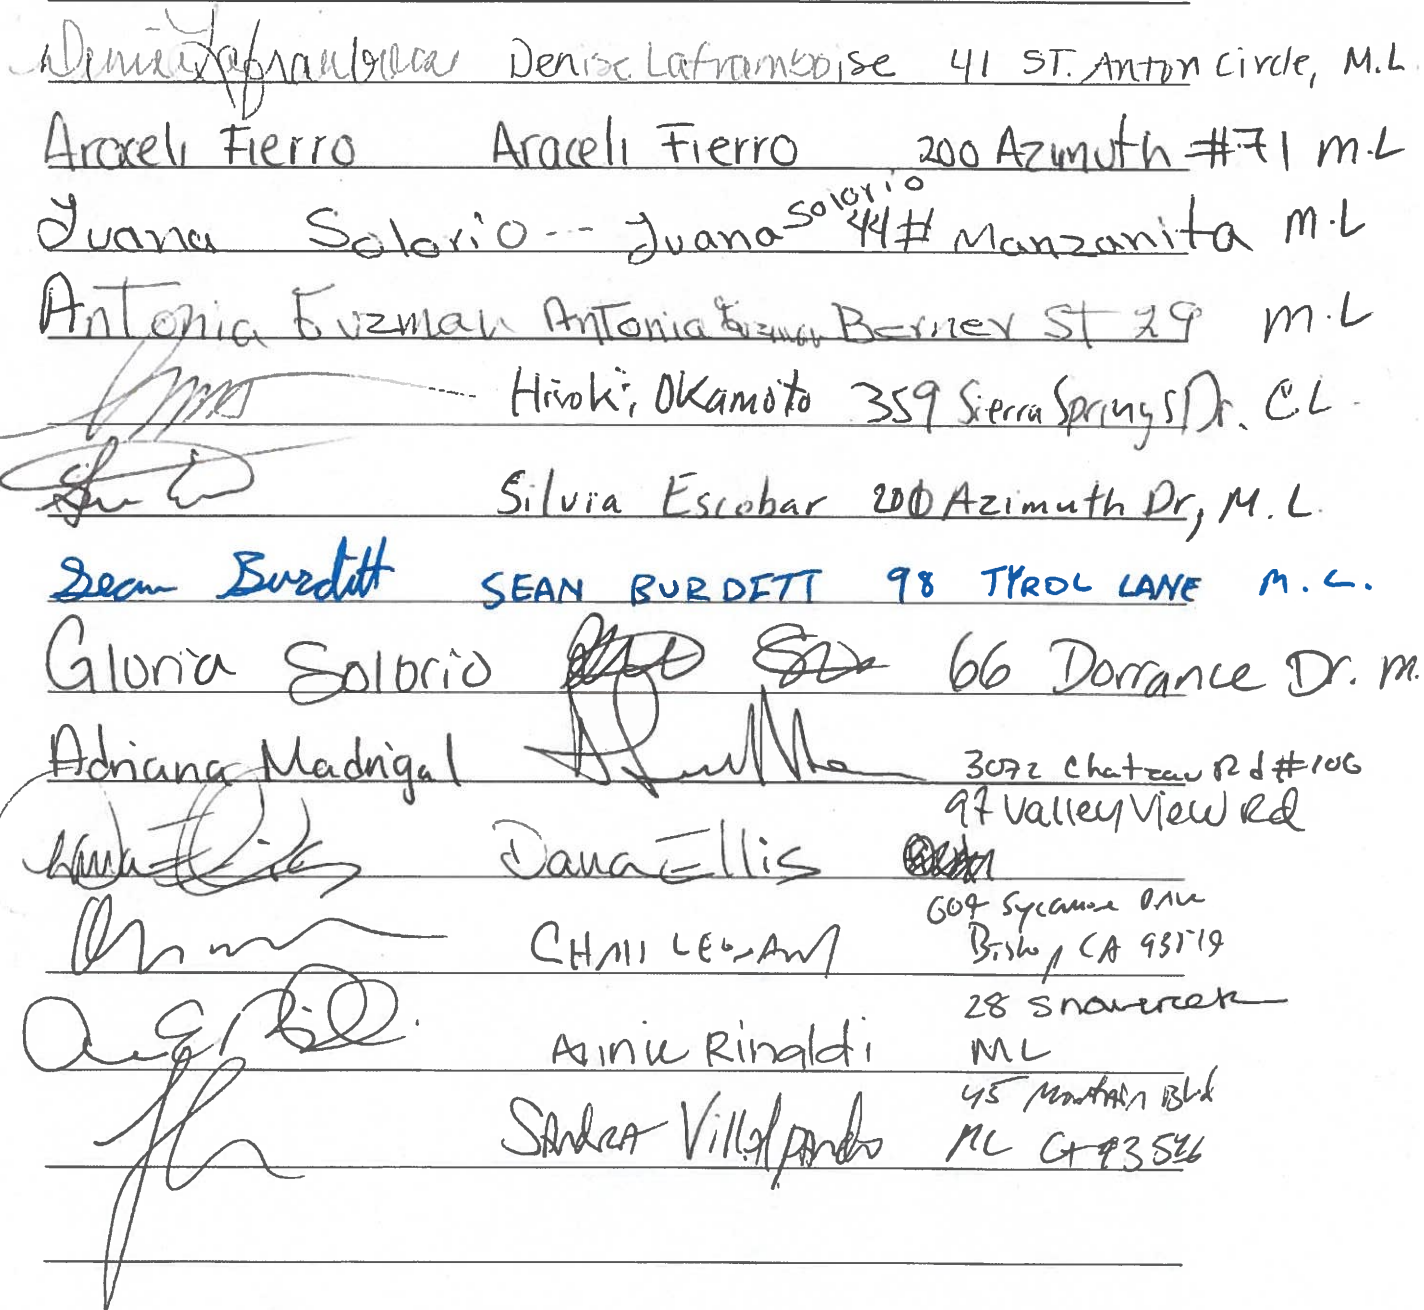 Denise Laframboise Denise Laframboise 41 ST. Anton Circle, M.L
Araceli Fierro Araceli Fierro 200 Azimuth #71 M.L
Juana Solorio -- Juana Solorio 44# Manzanita M.L
Antonia Guzman Antonia Guzman Berner St 29 M.L
Hiroki Okamoto 359 Sierra Springs Dr. CL
Silvia Escobar 200 Azimuth Dr, M.L.
Sean Burdett SEAN BURDETT 98 TYROL LANE M.L.
Gloria Solorio 66 Dorrance Dr. M.
Adriana Madrigal 3072 Chateau Rd #106
97 Valley View Rd
Dana Ellis Dana Ellis
604 Sycamore Drive
Bishop, CA 93514
28 Snowcreek
Annie Rinaldi ML
45 Mountain Blvd
Sandra Villalpando ML CA 93546